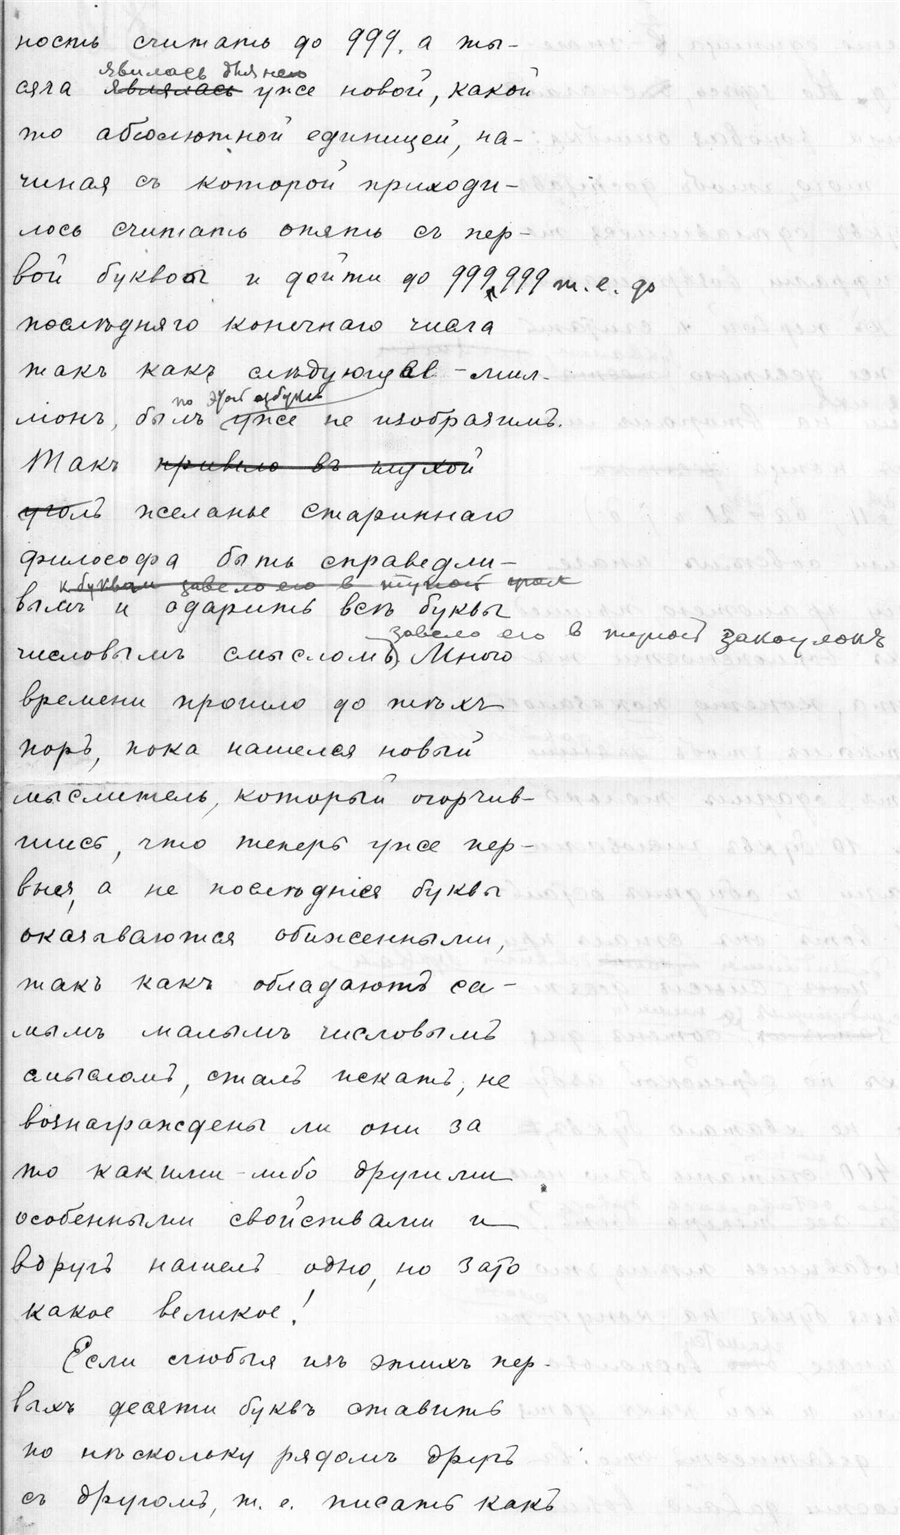 ность считать до 999, а ты-
явилась для него
сяча являлась уже новой, какой
то абсолютной единицей, на-
чиная съ которой приходи-
лось считать опять съ пер-
вой буквы и дойти до 999,999 т. е. до
послѣдняго конечнаго числа
такъ какъ слѣдующее - мил-
по этой азбукѣ
лионъ, былъ уже не изобразимъ.
Такъ привело въ глухой
уголъ желанье стариннаго
философа быть справедли-
к буквам завело его в глухой угол
вымъ и одарить всѣ буквы
завело его в глухой закоулокъ
числовымъ смысломъ. Много
времени прошло до тѣхъ
поръ, пока нашелся новый
мыслитель, который огорчив-
шись, что теперь уже пер-
выя, а не послѣднія буквы
оказываются обиженными,
такъ какъ обладаютъ са-
мымъ малымъ числовымъ
смысломъ, сталъ искать, не
вознаграждены ли они за
то какими-либо другими
особенными свойствами и
вдругъ нашелъ одно, но зато
какое великое!
Если любыя изъ этихъ пер-
выхъ десяти буквъ ставить
по нѣскольку рядомъ другъ
съ другомъ, т. е. писать какъ